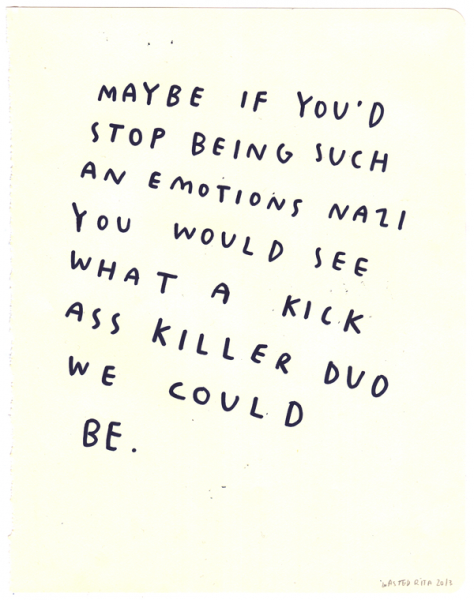 MAYBE IF YOU'D
STOP BEING SUCH
AN EMOTIONS NAZI
YOU WOULD SEE
WHAT A KICK
ASS KILLER DUO
WE COULD
BE.
WASTED RITA 2013